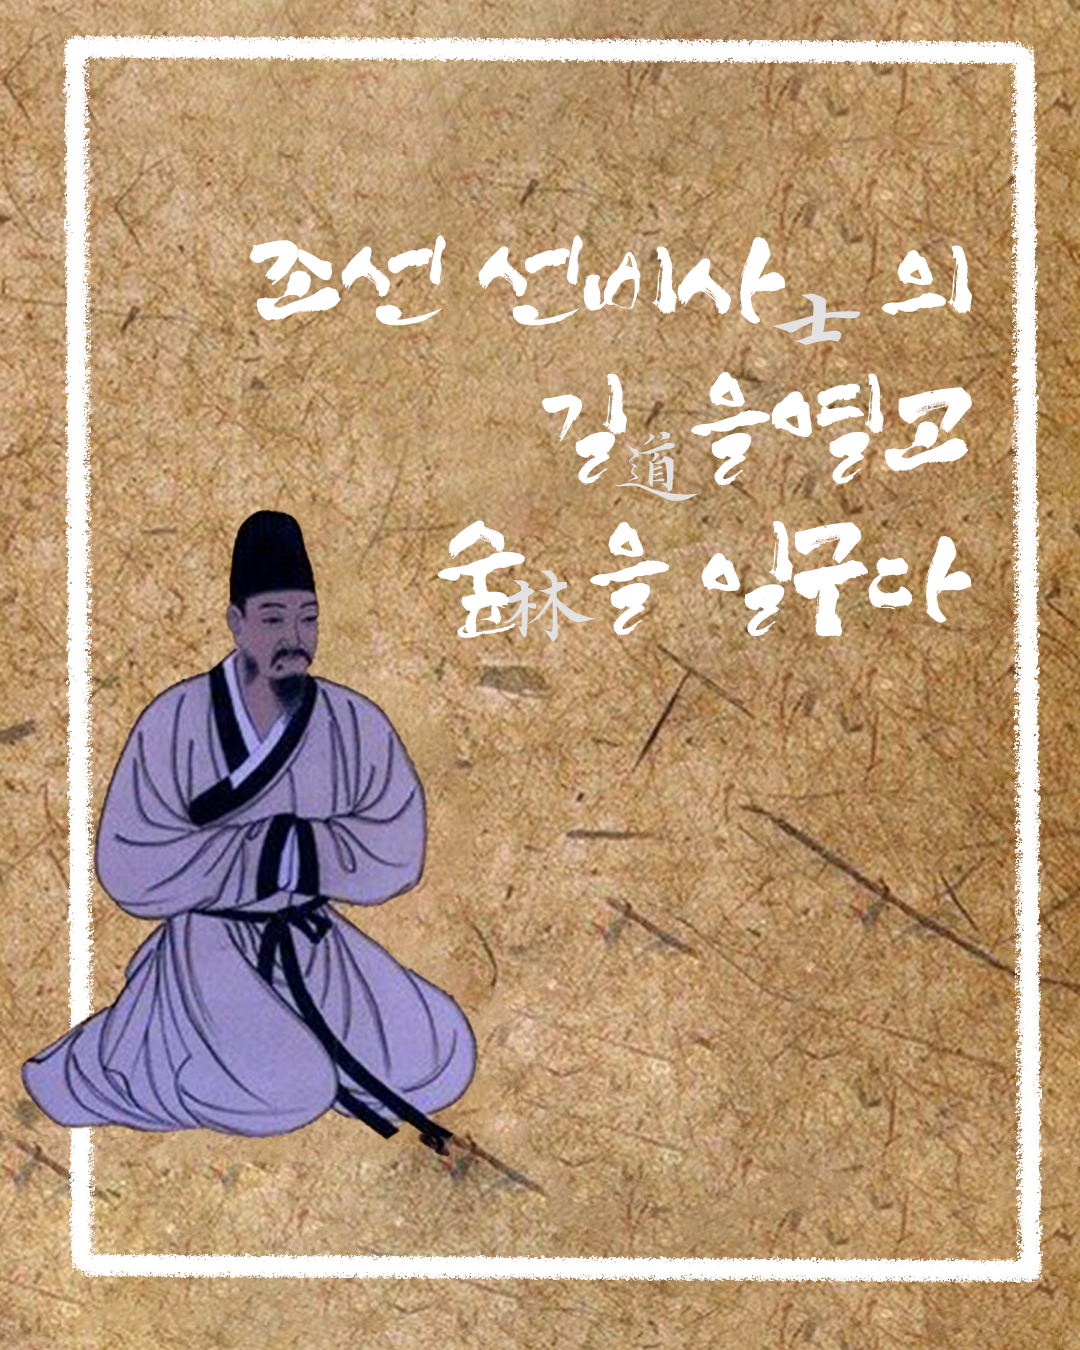 조선 선비사士의
길道을열고
숲林을 일구다